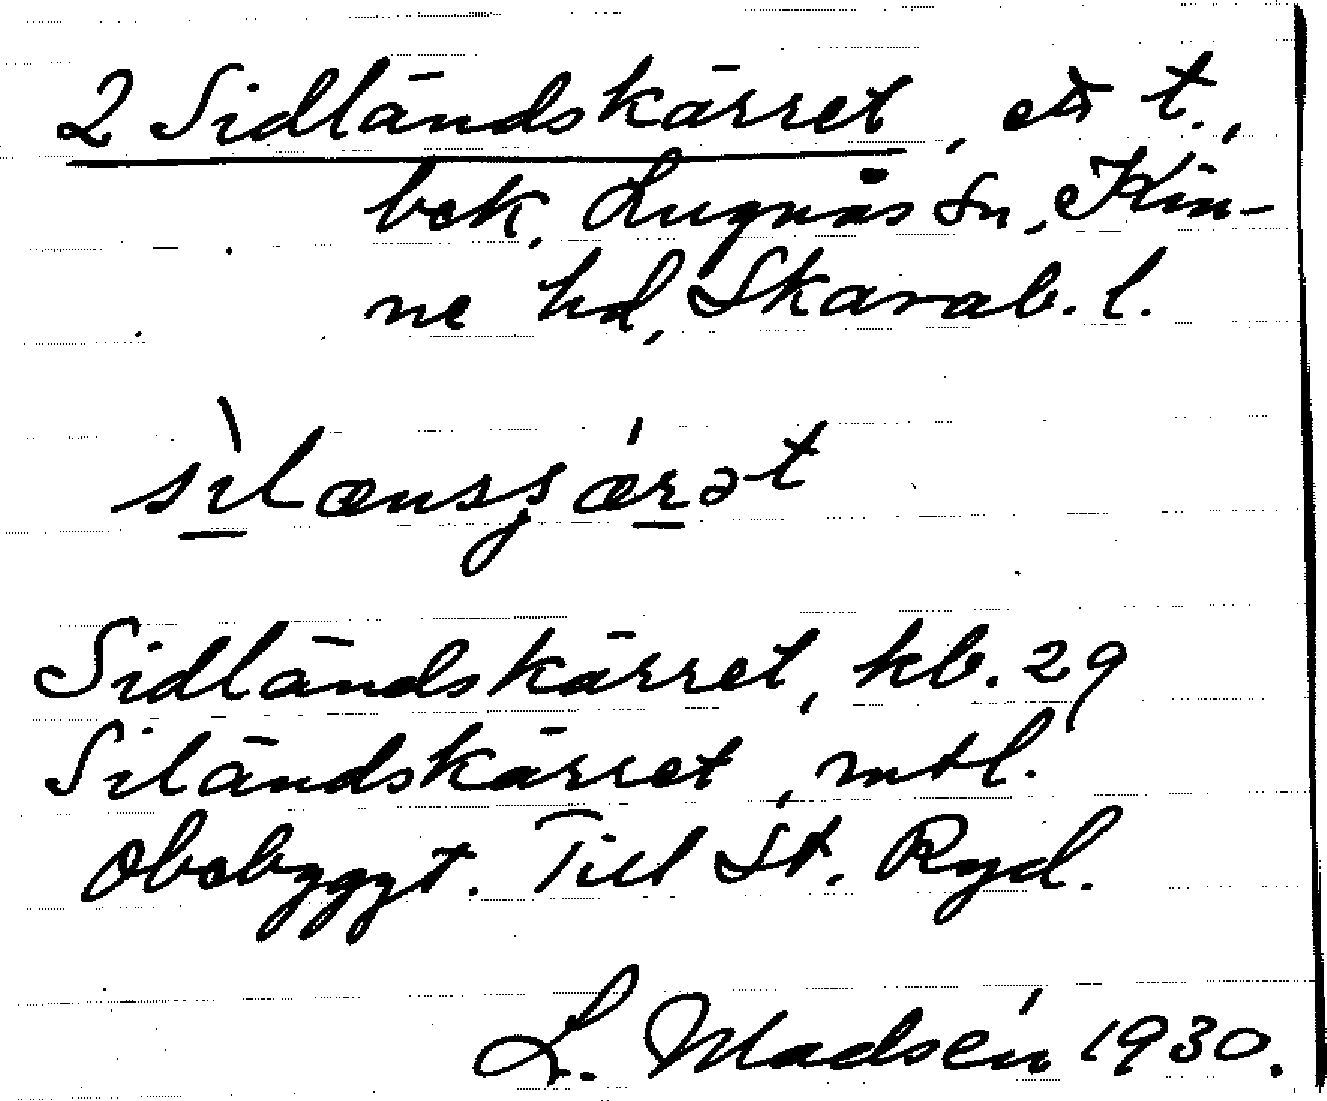 2 Sidländskärret, ett t.,
bek, Lugnås sn, Kin-
ne hd, Skarab. l.
sìlænsʂǽrət
Sidländskärret, kb. 29
Siländskärret, mtl.
Obebyggt. Till St. Ryd.
L. Madsén 1930.